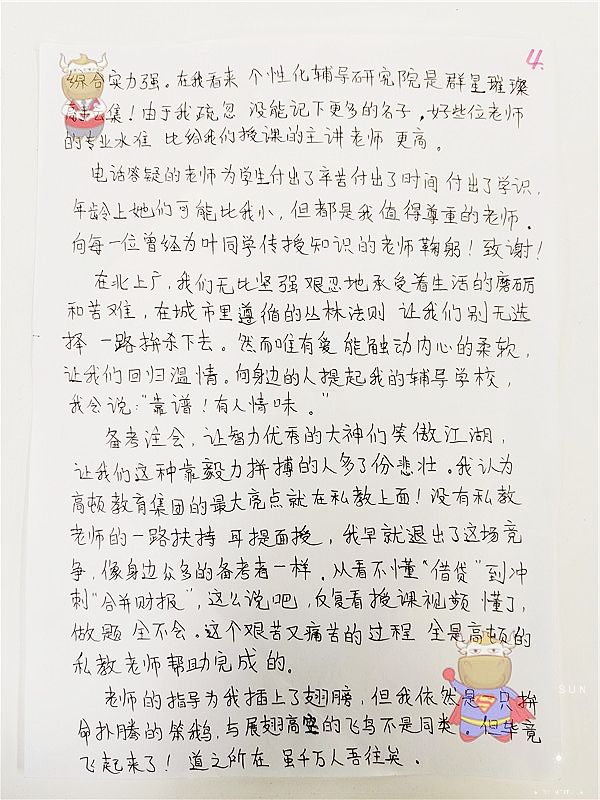 4.
综合实力强。在我看来 个性化辅导研究院是群星璀璨
高手云集！由于我疏忽 没能记下更多的名字，好些位老师
的专业水准 比给我们授课的主讲老师 更高。
电话答疑的老师为学生付出了辛苦付出了时间 付出了学识，
年龄上她们可能比我小，但都是我值得尊重的老师。
向每一位曾经为叶同学传授知识的老师鞠躬！致谢！
在北上广，我们无比坚强 艰忍地承受着生活的磨砺
和苦难，在城市里遵循的丛林法则 让我们别无选
择 一路拼杀下去。然而唯有爱 能触动内心的柔软，
让我们回归温情。向身边的人提起我的辅导学校，
我会说：“靠谱！有人情味。”
备考注会，让智力优秀的大神们笑傲江湖，
让我们这种靠毅力拼搏的人多了份悲壮。我认为
高顿教育集团的最大亮点就在私教上面！没有私教
老师的一路扶持 耳提面授，我早就退出了这场竞
争，像身边众多的备考者一样。从看不懂“借贷”到冲
刺“合并财报”，这么说吧，反复看授课视频 懂了，
做题 全不会。这个艰苦又痛苦的过程 全是高顿的
私教老师帮助完成的。
老师的指导为我插上了翅膀，但我依然是一只拼
命扑腾的笨鹅，与展翅高空的飞鸟不是同类。但毕竟
飞起来了！道之所在 虽千万人吾往矣。
SUN